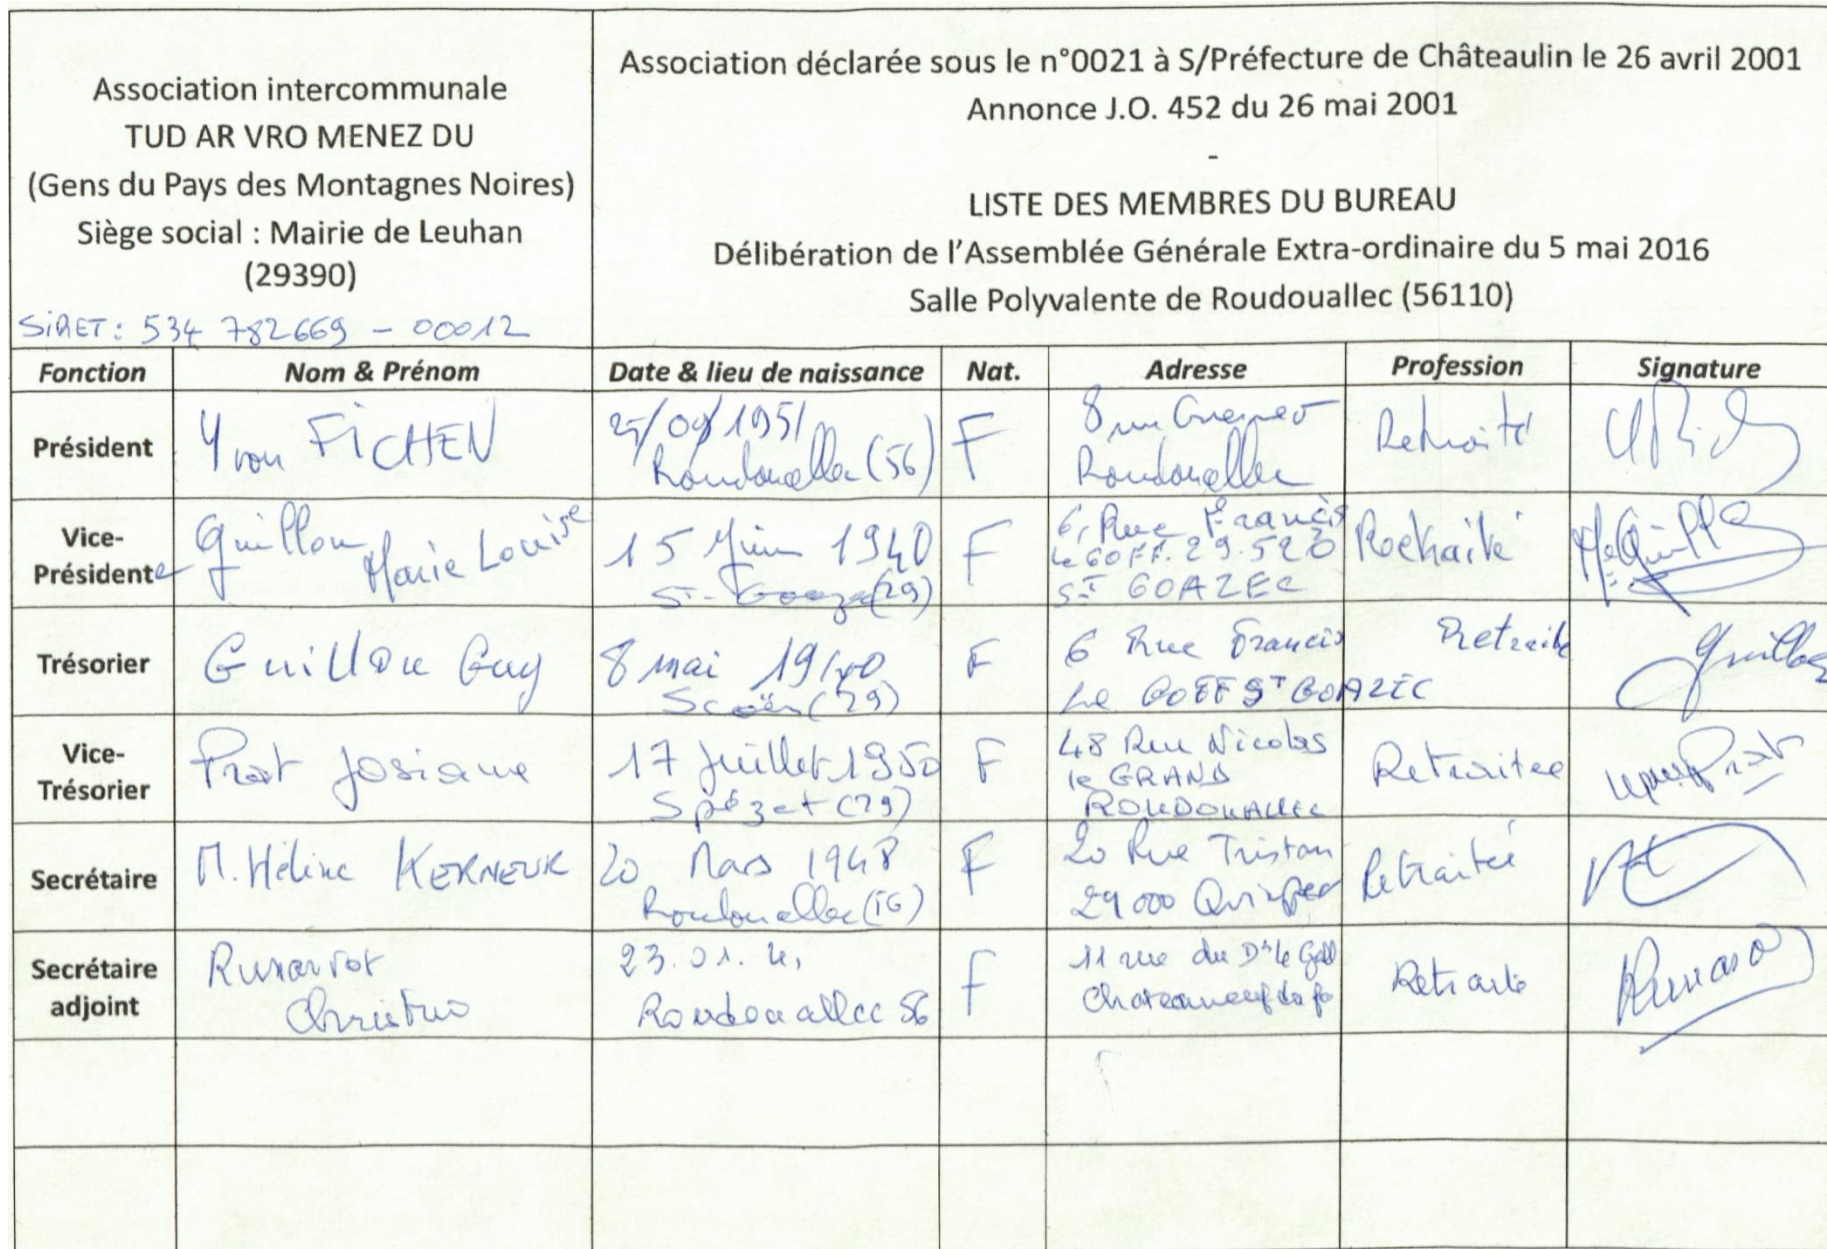 Association intercommunale
TUD AR VRO MENEZ DU
(Gens du Pays des Montagnes Noires)
Siège social : Mairie de Leuhan
(29390)
SiRET : 534 782669 - 00012
Association déclarée sous le n°0021 à S/Préfecture de Châteaulin le 26 avril 2001
Annonce J.O. 452 du 26 mai 2001
-
LISTE DES MEMBRES DU BUREAU
Délibération de l'Assemblée Générale Extra-ordinaire du 5 mai 2016
Salle Polyvalente de Roudouallec (56110)
Fonction Nom & Prénom Date & lieu de naissance Nat. Adresse Profession Signature
Président
Yvon FiCHEN
/1951
Roudouallec (56)
F
8 rue
Roudouallec
Retraité
Vice-
Présidente
Guillou
Marie Louise
15 Juin 1940
St- (29)
F
6, Rue Francis
Le GOFF. 29.520
ST GOAZEC
Retraité
Trésorier
Guillou Guy
8 mai 1940
Scaër (29)
F
6 Rue Francis
Le GOFF ST GOAZEC
Retraité
Guillou
Vice-
Trésorier
Prat Josiane
17 Juillet 1950
Spézet (29)
F
48 Rue Nicolas
le GRAND
ROUDOUALLEC
Retraitee
Prat
Secrétaire
M. Hélène KERNEUR
20 Mars 1948
Roudouallec (56)
F
20 Rue Tristan
29000 Quimper
Retraitée
Secrétaire
adjoint
23.01.
Roudouallec 56
F
11 rue du Dr le Gall
Chateauneuf du fo
Retraite